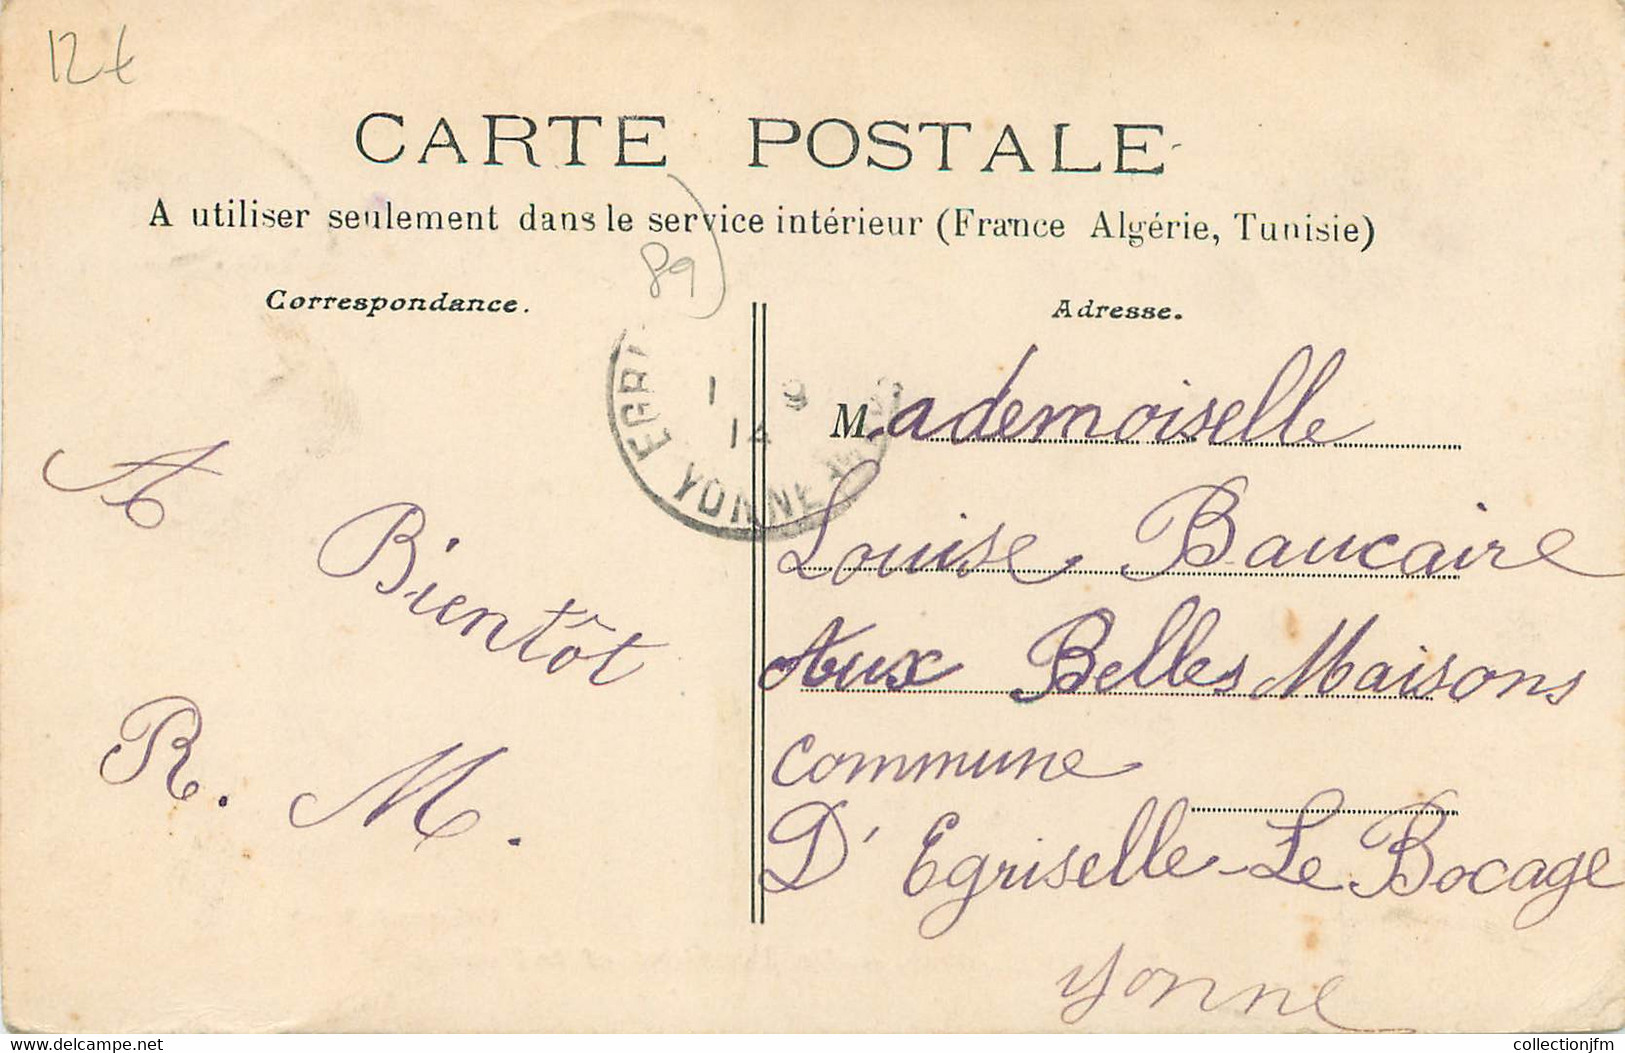 12€
CARTE POSTALE
A utiliser seulement dans le service intérieur (France Algérie, Tunisie)
89)
Correspondance.
Adresse.
A Bientôt
R. M.
YONNE
1
14
Mademoiselle
Louise Baucaire
Aux Belles Maisons
commune
D'Egriselle-Le Bocage
Yonne
www.delcampe.net
collectionjfm